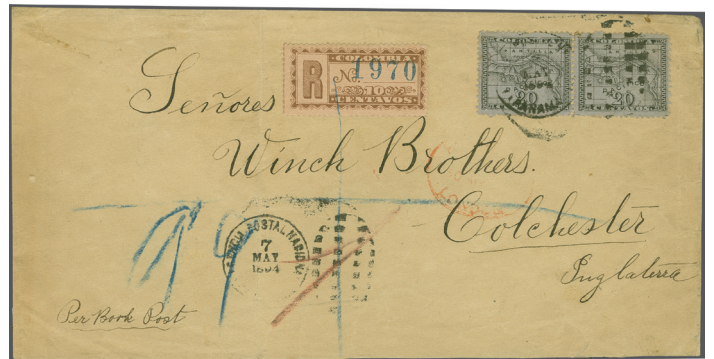 COLOMBIA
R No. 1970
10
CENTAVOS
20
20
PANAMA
Señores
Winch Brothers.
Colchester
Inglaterra
AGENCIA POSTAL NACIONAL
7
MAY
1894
Per Book Post